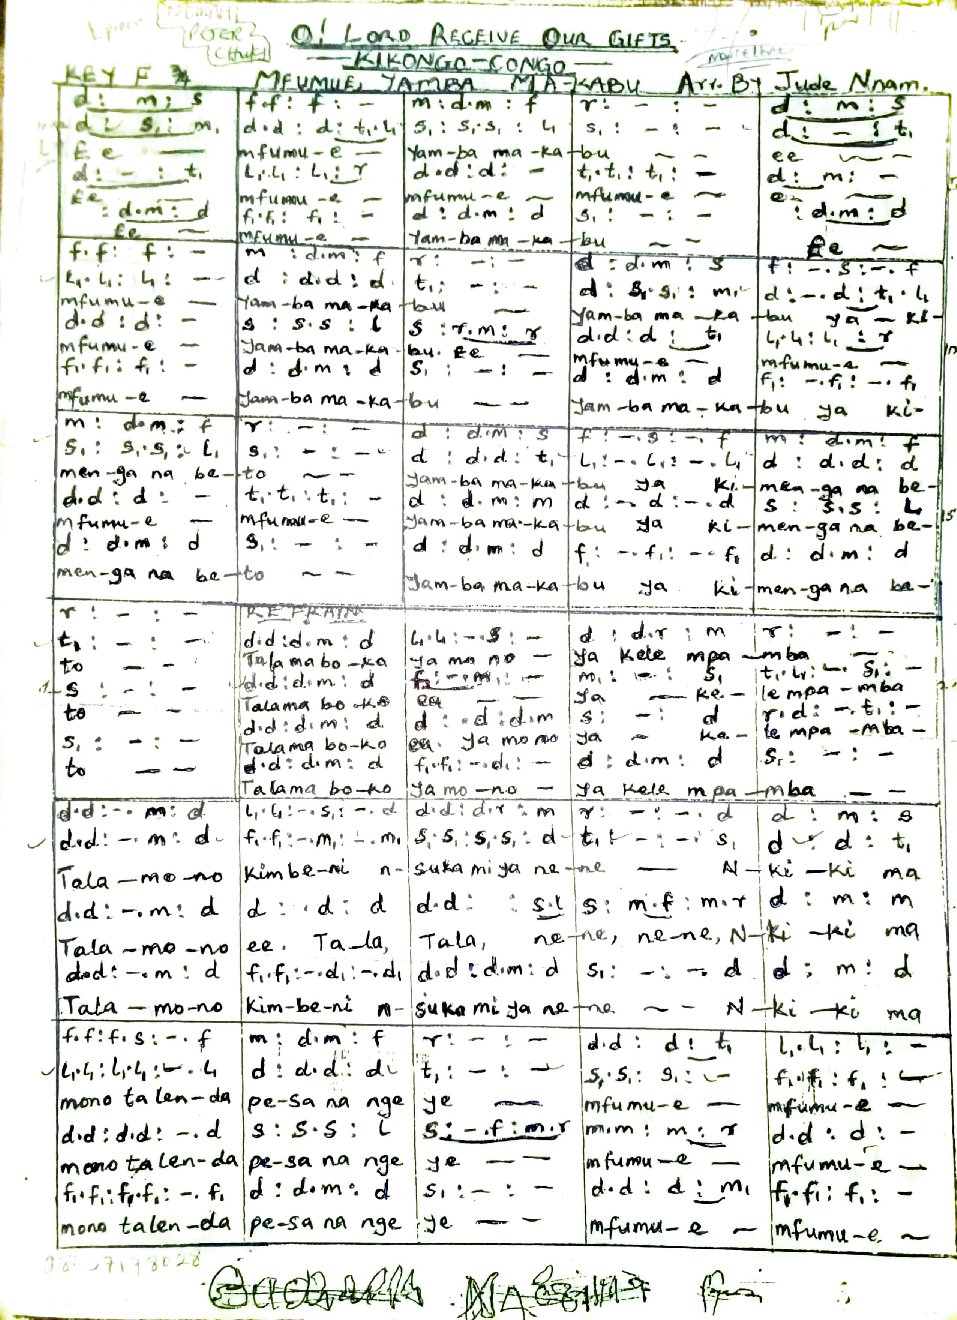 PETER
O! LORD RECEIVE OUR GIFTS
KIKONGO-CONGO
KEY F 3/4 MFUMUE, YAMBA MAKABU Arr. By Jude Nnam.
d : m : s | f.f : f : – | m : d.m : f | r : – : – | d : m : s
d : s₁ : m₁ | d.d : d : t₁.l₁ | s₁ : s₁.s₁ : l₁ | s₁ : – : – | d : – : t₁
Ee — | mfumu-e — | Yam-ba ma-ka-bu – – | ee – –
d : – : t₁ | l₁.l₁ : l₁ : r | d.d : d : – | t₁.t₁ : t₁ : – | d : m : –
Ee | mfumu-e – | mfumu-e – | mfumu-e – | e –
: d.m : d | f₁.f₁ : f₁ : – | d : d.m : d | s₁ : – : – | : d.m : d
Ee – | mfumu-e – | Yam-ba ma-ka-bu – – | Ee –
f.f : f : – | m : d.m : f | r : – : – | d : d.m : s | f : –.s : –.f
l₁.l₁ : l₁ : – | d : d.d : d | t₁ : – : – | d : s₁.s₁ : m₁ | d : –.d : t₁.l₁
mfumu-e – | Yam-ba ma-ka-bu – – | Yam-ba ma-ka-bu ya – ki-
d.d : d : – | s : s.s : l | s : r.m : r | d.d : d : t₁ | l₁.l₁ : l₁ : r
mfumu-e – | Yam-ba ma-ka-bu. Ee – | mfumu-e – | mfumu-e –
f₁.f₁ : f₁ : – | d : d.m : d | s₁ : – : – | d : d.m : d | f₁ : –.f₁ : –.f₁
mfumu-e – | Yam-ba ma-ka-bu – – | Yam-ba ma-ka-bu ya ki-
m : d.m : f | r : – : – | d : d.m : s | f : –.s : –.f | m : d.m : f
s₁ : s₁.s₁ : l₁ | s₁ : – : – | d : d.d : t₁ | l₁ : –.l₁ : –.l₁ | d : d.d : d
men-ga na be-to – – | Yam-ba ma-ka-bu ya ki-men-ga na be-
d.d : d : – | t₁.t₁ : t₁ : – | d : d.m : m | d : –.d : –.d | s : s.s : l
mfumu-e – | mfumu-e – | Yam-ba ma-ka-bu ya ki-men-ga na be-
d : d.m : d | s₁ : – : – | d : d.m : d | f : –.f₁ : –.f₁ | d : d.m : d
men-ga na be-to – – | Yam-ba ma-ka-bu ya ki-men-ga na be-
r : – : – | REFRAIN
t₁ : – : – | d.d : d.m : d | l₁.l₁ : –.s : – | d : d.r : m | r : – : –
to – – | Talama bo-ka | ya mo no – | ya kele mpa-mba – –
s : – : – | d.d : d.m : d | f₁ : –.m₁ : – | m₁ : – : s₁ | t₁.l₁ : –.s₁ : –
to – – | Talama bo-ko | ee – | ya – ke-le mpa-mba
s₁ : – : – | d.d : d.m : d | d : –.d : d.m | s : – : d | r.d : –.t₁ : –
to – – | Talama bo-ko | ee. ya mo no | ya – ke-le mpa-mba-
d.d : d.m : d | f₁.f₁ : –.d₁ : – | d : d.m : d | s₁ : – : –
Talama bo-ko | ya mo-no – | ya kele mpa-mba – –
d.d : –.m : d | l₁.l₁ : –.s₁ : –.d | d.d : d.r : m | r : – : –.d | d : m : s
d.d : –.m : d | f₁.f₁ : –.m₁ : –.m₁ | s₁.s₁ : s₁.s₁ : d | t₁ : – : –.s₁ | d : d : t₁
Tala-mo-no | kimbe-ni n-suka mi ya ne-ne – N-ki-ki ma
d.d : –.m : d | d : .d : d | d.d : : s.l | s : m.f : m.r | d : m : m
Tala-mo-no | ee. Ta-la, | Tala, ne-ne, ne-ne, N-ki-ki ma
d.d : –.m : d | f₁.f₁ : –.d₁ : –.d₁ | d.d : d.m : d | s₁ : – : –.d | d : m : d
Tala-mo-no | kim-be-ni n-suka mi ya ne-ne – – N-ki-ki ma
f.f : f.s : –.f | m : d.m : f | r : – : – | d.d : d : t₁ | l₁.l₁ : l₁ : –
l₁.l₁ : l₁.l₁ : –.l₁ | d : d.d : d | t₁ : – : – | s₁.s₁ : s₁ : – | f₁.f₁ : f₁ : –
mono ta len-da | pe-sa na nge | ye – | mfumu-e – | mfumu-e –
d.d : d.d : –.d | s : s.s : l | s : –.f : m.r | m.m : m : r | d.d : d : –
mono ta len-da | pe-sa na nge | ye – – | mfumu-e – | mfumu-e –
f₁.f₁ : f₁.f₁ : –.f₁ | d : d.m : d | s₁ : – : – | d.d : d : m₁ | f₁.f₁ : f₁ : –
mono ta len-da | pe-sa na nge | ye – – | mfumu-e – | mfumu-e –